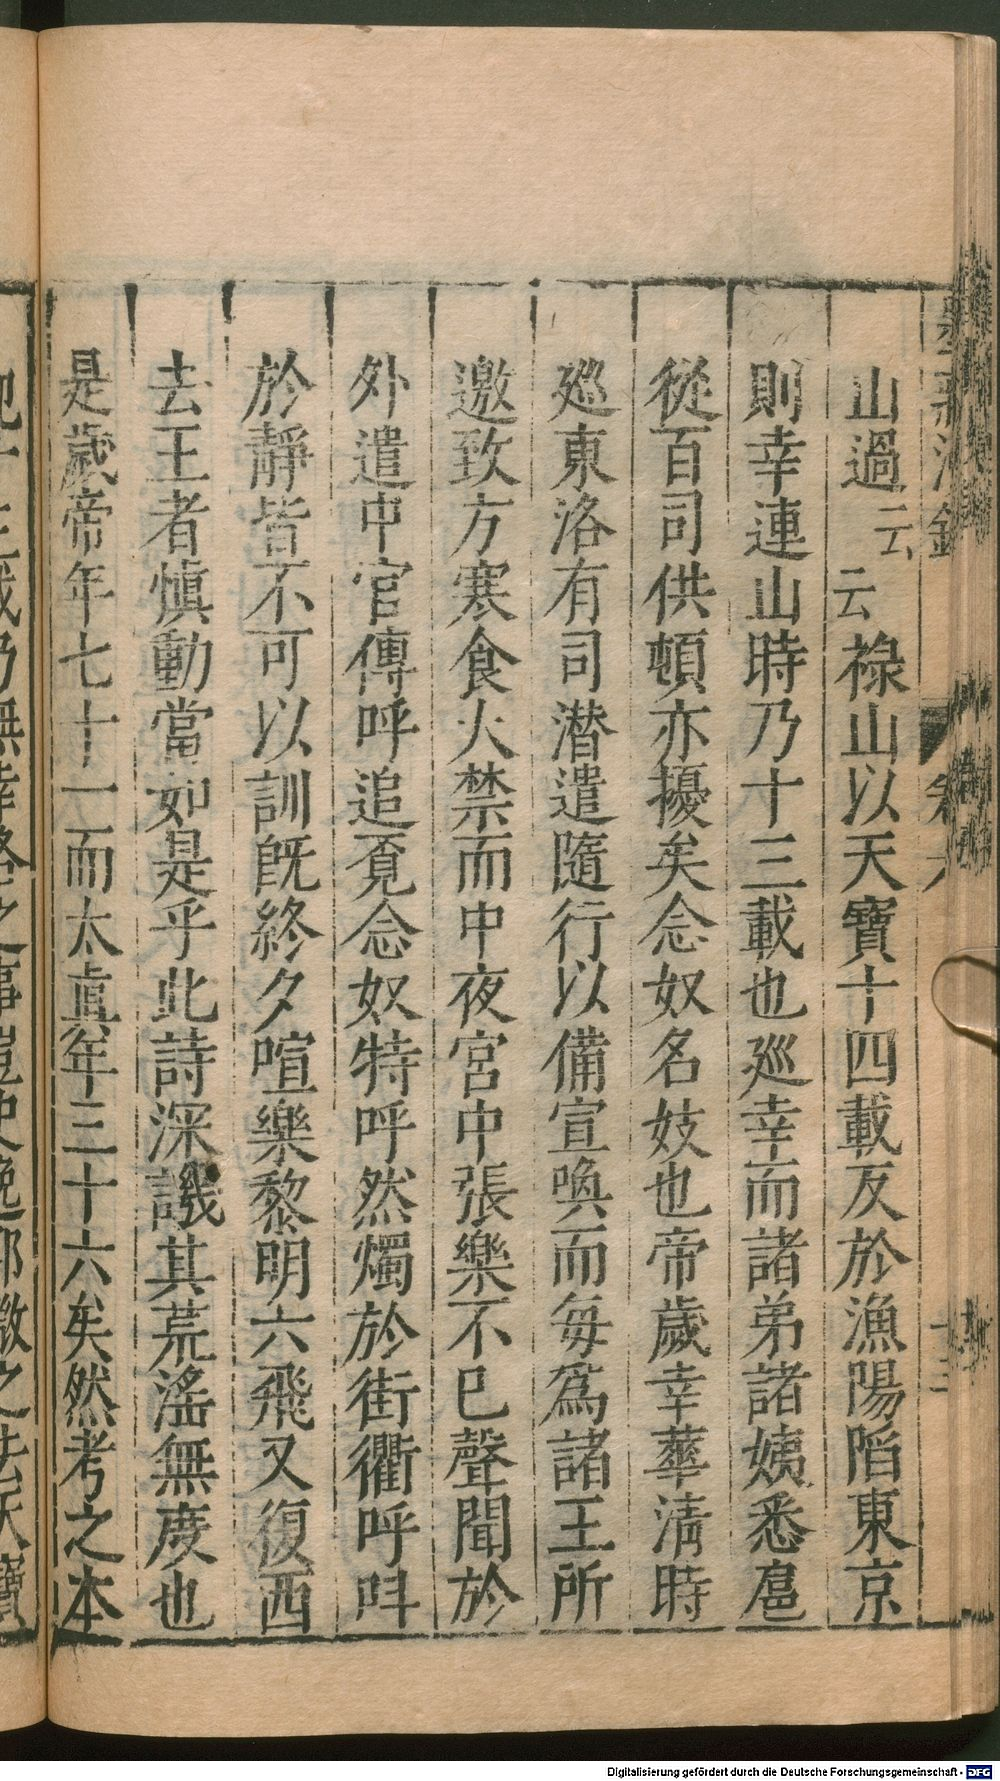 山過云云祿山以天寶十四載反於漁陽陷東京
則幸連山時乃十三載也廵幸而諸弟諸姨悉扈
從百司供頓亦擾矣念奴名妓也帝歲幸華清時
廵東洛有司潜遣隨行以備宣喚而每爲諸王所
邀致方寒食火禁而中夜宮中張樂不已聲聞於
外遣中官傳呼追覔念奴特呼然燭於街衢呼呌
於靜皆不可以訓旣終夕喧樂黎明六飛又復西
去王者愼動當如是乎此詩深譏其荒滛無度也
是歲帝年七十一而太眞年三十六矣然考之本
Digitalisierung gefördert durch die Deutsche Forschungsgemeinschaft - DFG